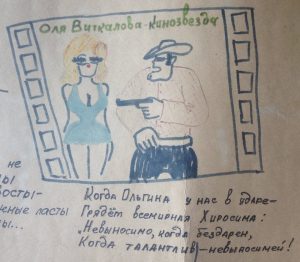 Оля Виткалова-кинозвезда
не
ы
восты-
жные ласты
ы...
Когда Ольгина у нас в ударе-
Грядёт всемирная Хиросима:
"Невыносимо, когда бездарен,
Когда талантлив-невыносимей!